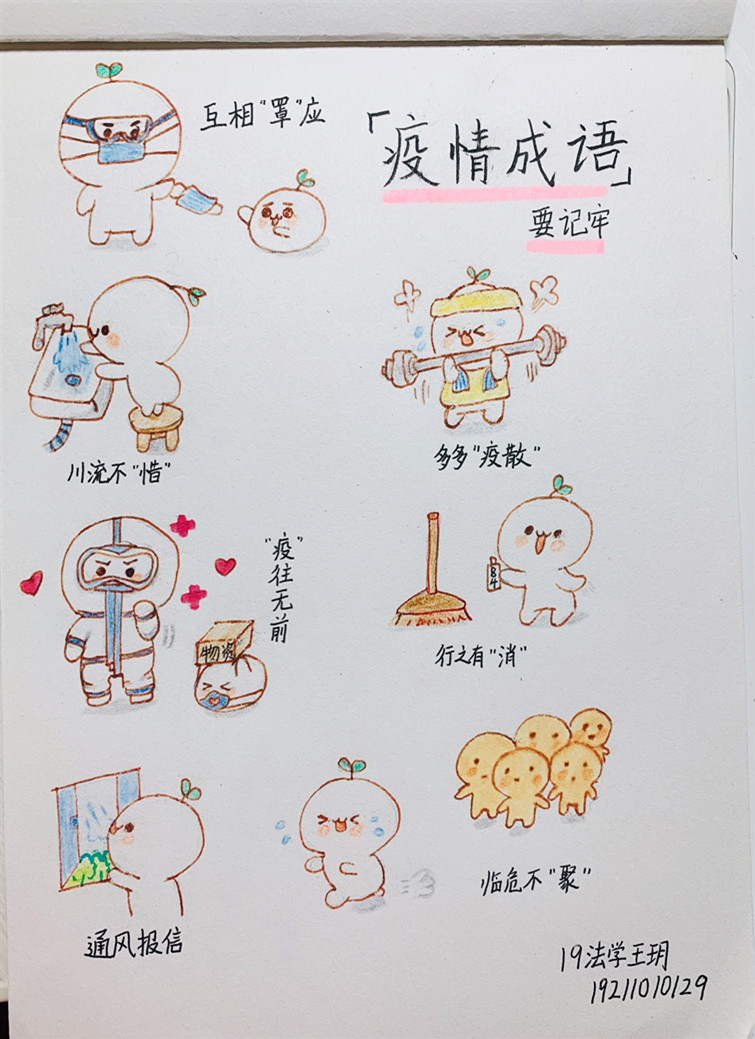 互相"罩"应
「疫情成语」
要记牢
川流不"惜"
多多"疫散"
"疫"往无前
物资
84
行之有"消"
通风报信
临危不"聚"
19法学王玥
19211010129